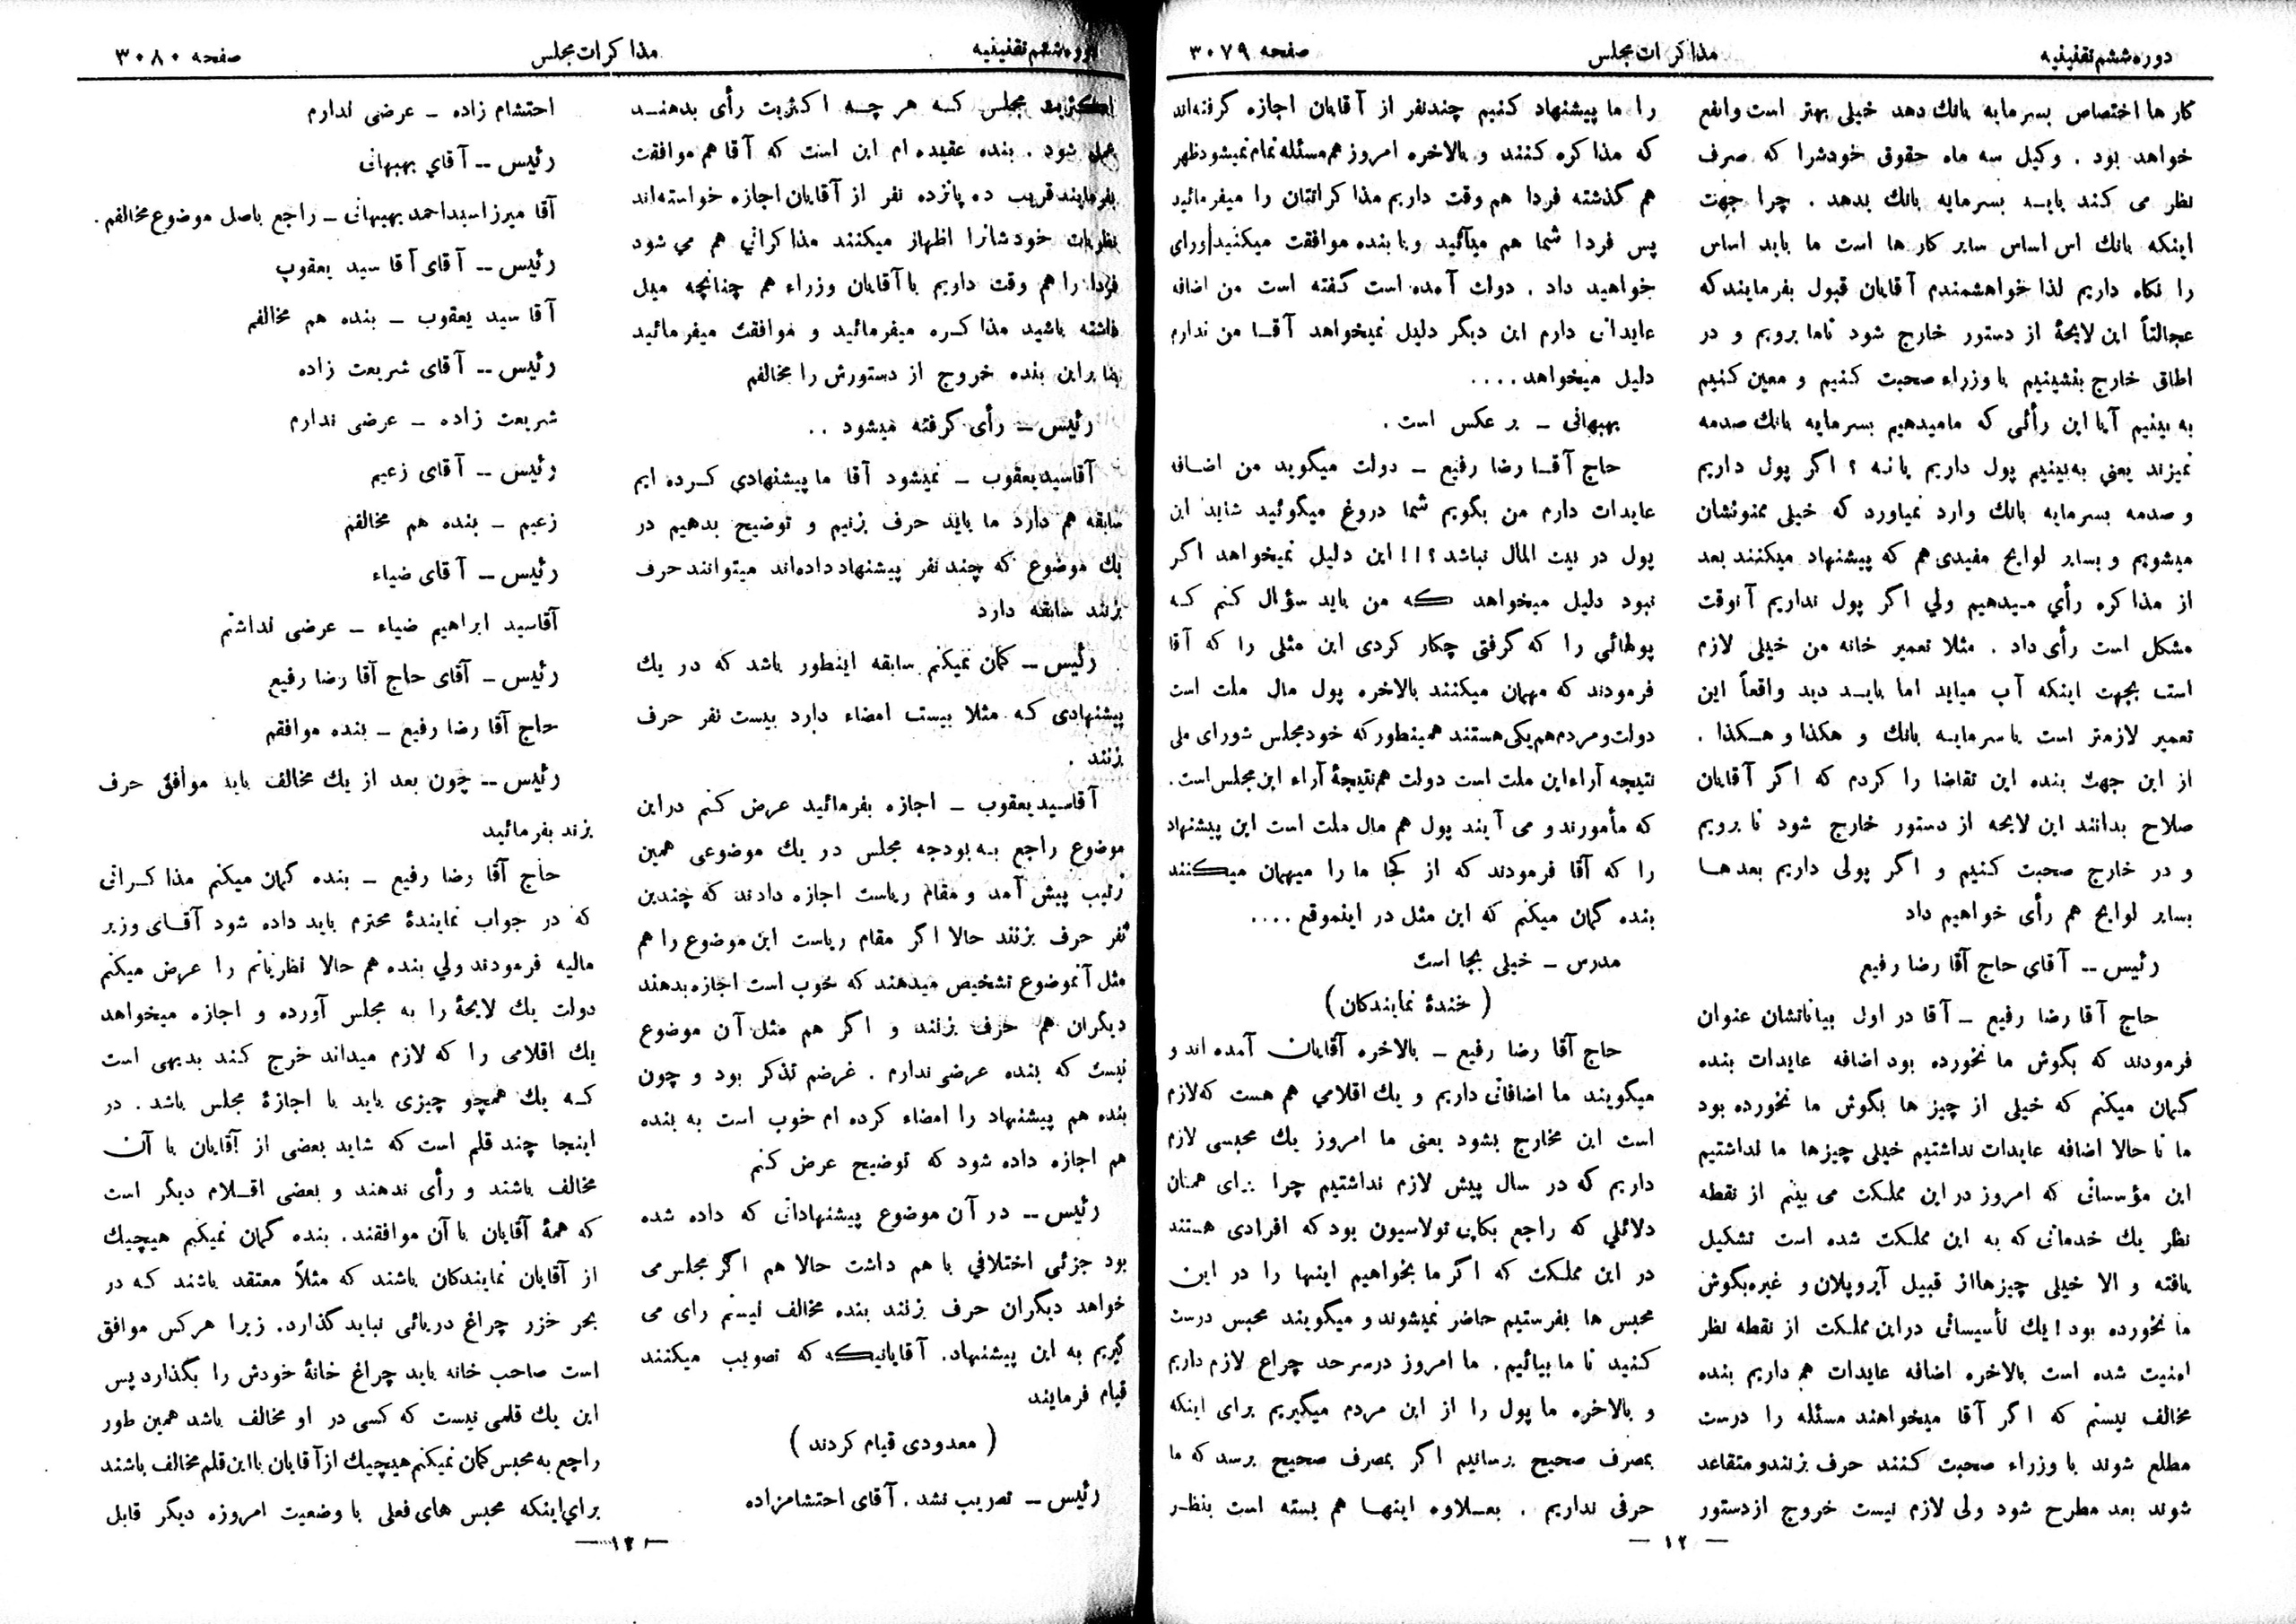 دوره ششم تقنینیه
مذاکرات مجلس
صفحه ۳۰۷۹
کار ها اختصاص بسرمایه بانك دهد خیلی بهتر است وانفع
خواهد بود . وکیل سه ماه حقوق خودشرا که صرف
نظر می کند بایـد بسرمایه بانك بدهد . چرا جهت
اینکه بانك اس اساس سایر کار ها است ما باید اساس
را نگاه داریم لذا خواهشمندم آقایان قبول بفرمایند که
عجالتاً این لایحهٔ از دستور خارج شود تاما برویم و در
اطاق خارج بنشینیم با وزراء صحبت کنیم و معین کنیم
به بینیم آیا این رأئی که مامیدهیم بسرمایه بانك صدمه
نمیزند یعنی به‌بینیم پول داریم یا نه ؟ اگر پول داریم
و صدمه بسرمایه بانك وارد نمیاورد که خیلی ممنونشان
میشویم و بسایر لوایح مفیدی هم که پیشنهاد میکنند بعد
از مذاکره رأي میدهیم ولي اگر پول نداریم آنوقت
مشکل است رأی داد . مثلا تعمیر خانه من خیلی لازم
است بجهت اینکه آب میاید اما بایـد دید واقعاً این
تعمیر لازمتر است یا سرمایـه بانك و هکذا و هـکذا .
از این جهت بنده این تقاضا را کردم که اگر آقایان
صلاح بدانند این لایحه از دستور خارج شود تا برویم
و در خارج صحبت کنیم و اگر پولی داریم بعدهـا
بسایر لوایح هم رأی خواهیم داد
رئیس -- آقاي حاج آقا رضا رفیع
حاج آقا رضا رفیع - آقا در اول بیاناتشان عنوان
فرمودند که بگوش ما نخورده بود اضافه عایدات بنده
گمان میکنم که خیلی از چیز ها بگوش ما نخورده بود
ما تا حالا اضافه عایدات نداشتیم خیلی چیزها ما نداشتیم
این مؤسساتی که امروز در این مملکت می بینم از نقطه
نظر یك خدماتی که به این مملکت شده است تشکیل
یافته و الا خیلی چیزها از قبیل آیروپلان و غیره بگوش
ما نخورده بود ! یك تأسیساتی در این مملکت از نقطه نظر
امنیت شده است بالاخره اضافه عایدات هم داریم بنده
مخالف نیستم که اگر آقا میخواهند مسئله را درست
مطلع شوند با وزراء صحبت کنند حرف بزنند و متقاعد
شوند بعد مطرح شود ولی لازم نیست خروج از دستور
را ما پیشنهاد کنیم چندنفر از آقایان اجازه گرفته‌اند
که مذاکره کنند و بالاخره امروز هم مسئله تمام نمیشود ظهر
هم گذشته فردا هم وقت داریم مذاکراتتان را میفرمائید
پس فردا شما هم میآئید و یا بنده موافقت میکنید و رای
خواهید داد . دولت آمده است گفته است من اضافه
عایداتی دارم این دیگر دلیل نمیخواهد آقـا من ندارم
دلیل میخواهد ....
بهبهانی - بر عکس است .
حاج آقـا رضا رفیع - دولت میگوید من اضـافه
عایدات دارم من بگویم شما دروغ میگوئید شاید این
پول در بیت المال نباشد ؟!! این دلیل نمیخواهد اگر
نبود دلیل میخواهد که من باید سؤال کنم کـه
پولهائي را که گرفتی چکار کردی این مثلی را که آقا
فرمودند که مهمان میکنند بالاخره پول مال ملت است
دولت و مردم هم یکی هستند همینطور که خود مجلس شورای ملی
نتیجه آراء این ملت است دولت هم نتیجهٔ آراء این مجلس است .
که مأمورند و می آیند پول هم مال ملت است این پیشنهاد
را که آقا فرمودند که از کجا ما را میهمان میکنند
بنده گمان میکنم که این مثل در اینموقع ....
مدرس - خیلی بجا است
( خندهٔ نمایندگان )
حاج آقا رضا رفیع - بالاخره آقایان آمده اند و
میگویند ما اضافاتی داریم و یك اقلامي هم هست که لازم
است این مخارج بشود یعنی ما امروز یك محبسی لازم
داریم که در سال پیش لازم نداشتیم چرا برای همان
دلائلي که راجع بکاپی تولاسیون بود که افرادی هستند
در این مملکت که اگر ما بخواهیم اینها را در این
محبس ها بفرستیم حاضر نمیشوند و میگویند محبس درست
کنید تا ما بیائیم . ما امروز در سرحد چراغ لازم داریم
و بالاخره ما پول را از این مردم میگیریم برای اینکه
بمصرف صحیح برسانیم اگر بمصرف صحیح برسد که ما
حرفی نداریم . بعـلاوه اینهـا هم بسته است بنظـر
— ۱۲ —
دوره ششم تقنینیه
مذاکرات مجلس
صفحه ۳۰۸۰
اکثریت مجلس کـه هر چـه اکثریت رأی بدهنـد
عمل شود . بنده عقیده ام این است که آقا هم موافقت
بفرمایند قریب ده پانزده نفر از آقایان اجازه خواسته‌اند
نظریات خودشانرا اظهار میکنند مذاکراتي هم می شود
فردا را هم وقت داریم با آقایان وزراء هم چنانچه میل
داشته باشید مذاکـره میفرمائید و موافقت میفرمائید
بنا براین بنده خروج از دستورش را مخالفم
رئیس - رأی گرفته میشود . .
آقاسید یعقوب - نمیشود آقا ما پیشنهادي کـرده ایم
سابقه هم دارد ما باید حرف بزنیم و توضیح بدهیم در
یك موضوع که چند نفر پیشنهاد داده‌اند میتوانند حرف
بزنند سابقه دارد
رئیس - گمان نمیکنم سابقه اینطور باشد که در یك
پیشنهادی کـه مثلا بیست امضاء دارد بیست نفر حرف
بزنند .
آقاسید یعقوب - اجازه بفرمائید عرض کنم دراین
موضوع راجع بـه بودجه مجلس در یك موضوعی همین
ترتیب پیش آمد و مقام ریاست اجازه دادند که چندین
نفر حرف بزنند حالا اگر مقام ریاست این موضوع را هم
مثل آنموضوع تشخیص میدهند که خوب است اجازه بدهند
دیگران هم حرف بزنند و اگر هم مثل آن موضوع
نیست که بنده عرضی ندارم . غرضم تذکر بود و چون
بنده هم پیشنهاد را امضاء کرده ام خوب است به بنده
هم اجازه داده شود که توضیح عرض کنم
رئیس -- در آن موضوع پیشنهاداتی که داده شده
بود جزئی اختلافي با هم داشت حالا هم اگر مجلس می
خواهد دیگران حرف بزنند بنده مخالف نیستم رای می
گیریم به این پیشنهاد. آقایانیکه که تصویب میکنند
قیام فرمایند
( معدودی قیام کردند )
رئیس - تصویب نشد . آقای احتشامزاده
احتشام زاده - عرضی ندارم
رئیس -- آقاي بهبهانی
آقا میرزا سیداحمد بهبهانی - راجع باصل موضوع مخالفم .
رئیس -- آقای آقا سید یعقوب
آقا سید یعقوب - بنده هم مخالفم
رئیس -- آقای شریعت زاده
شریعت زاده - عرضی ندارم
رئیس -- آقای زعیم
زعیم - بنده هم مخالفم
رئیس -- آقای ضیاء
آقاسید ابراهیم ضیاء - عرضی نداشتم
رئیس - آقای حاج آقا رضا رفیع
حاج آقا رضا رفیع - بنده موافقم
رئیس -- چون بعد از یك مخالف باید موافق حرف
بزند بفرمائید
حاج آقا رضا رفیع - بنده گمان میکنم مذاکـراتی
که در جواب نمایندهٔ محترم باید داده شود آقـای وزیر
مالیه فرمودند ولي بنده هم حالا نظریاتم را عرض میکنم
دولت یك لایحهٔ را به مجلس آورده و اجازه میخواهد
یك اقلامی را که لازم میداند خرج کند بدیهی است
کـه یك همچو چیزی باید با اجازهٔ مجلس باشد . در
اینجا چند قلم است که شاید بعضی از آقایان با آن
مخالف باشند و رأی ندهند و بعضی اقـلام دیگر است
که همهٔ آقایان با آن موافقند. بنده گمان نمیکنم هیچیك
از آقایان نمایندگان باشند که مثلاً معتقد باشند کـه در
بحر خزر چراغ دریائی نباید گذارد. زیرا هرکس موافق
است صاحب خانه باید چراغ خانهٔ خودش را بگذارد پس
این یك قلمی نیست که کسی در او مخالف باشد همین طور
راجع به محبس گمان نمیکنم هیچیك از آقایان با این قلم مخالف باشند
براي اینکه محبس های فعلی با وضعیت امروزه دیگر قابل